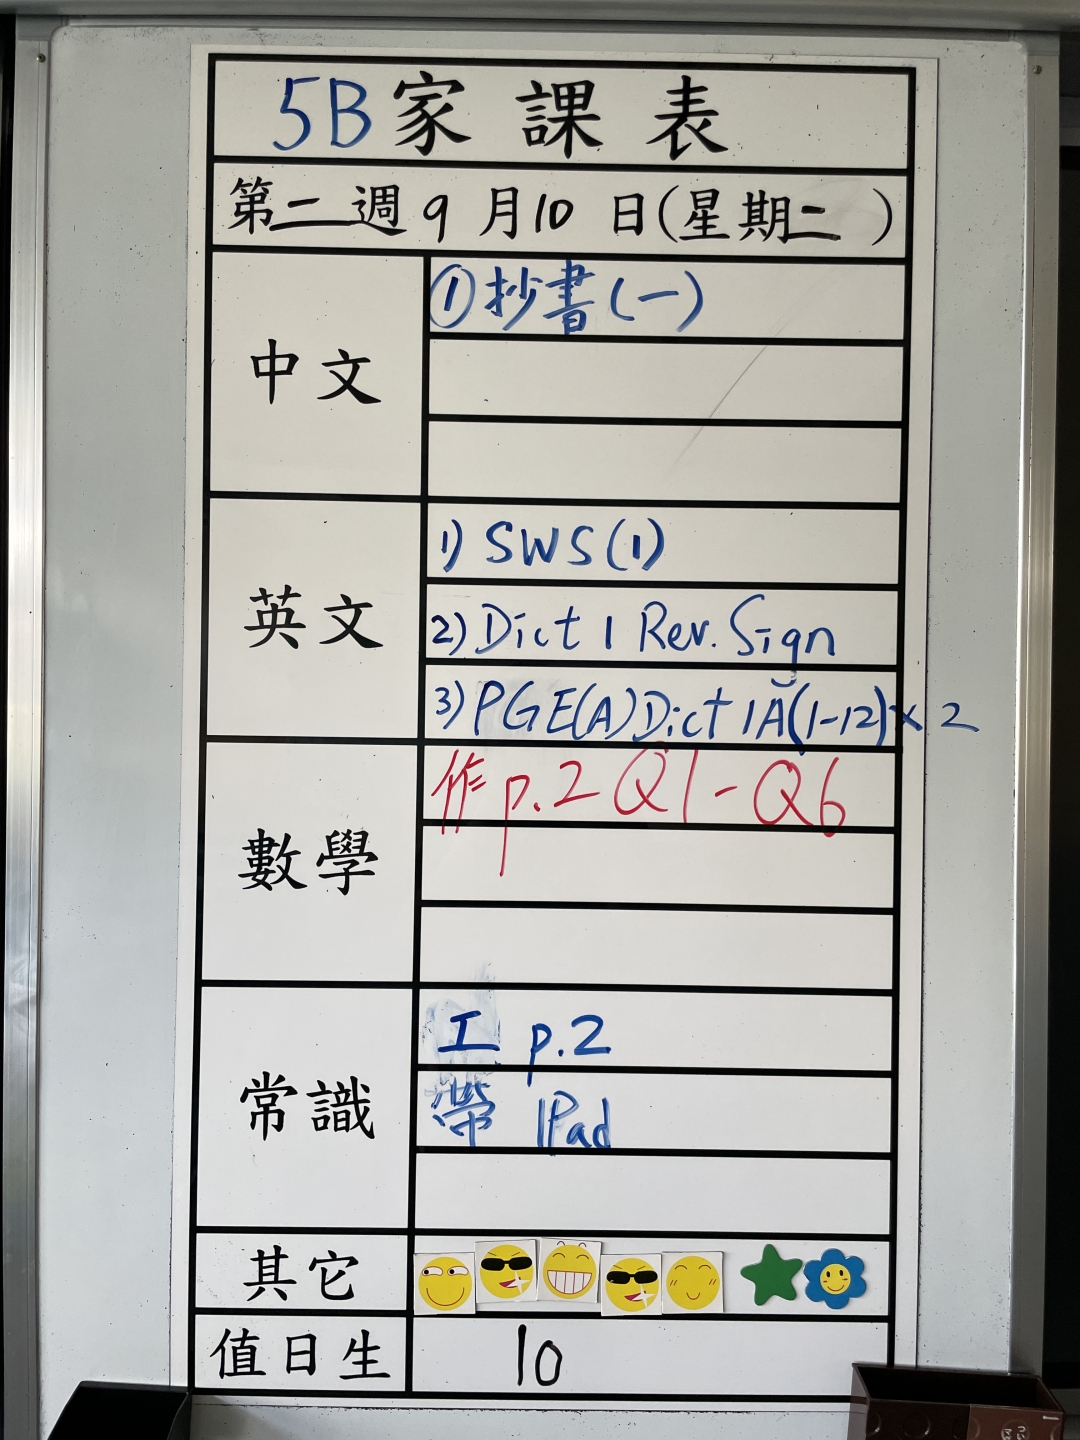 5B家課表
第二週9月10日(星期二)
中文
①抄書(一)
英文
1) SWS(1)
2) Dict 1 Rev. Sign
3) PGE(A) Dict 1A (1-12) × 2
數學
作 p.2 Q1 - Q6
常識
工 p.2
帶 IPad
其它
值日生
10